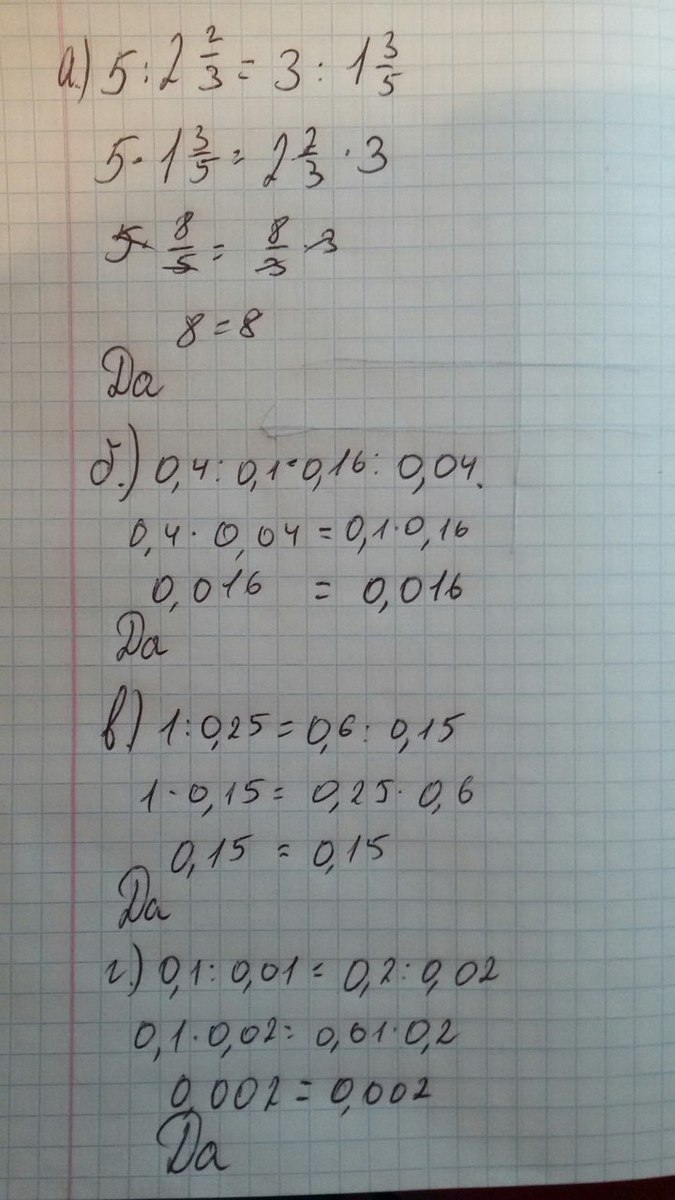 а.) 5 : 2 2/3 = 3 : 1 3/5
5 · 1 3/5 = 2 2/3 · 3
5 · 8/5 = 8/3 · 3
8 = 8
Да
б.) 0,4 : 0,1 = 0,16 : 0,04.
0,4 · 0,04 = 0,1 · 0,16
0,016 = 0,016
Да
в) 1 : 0,25 = 0,6 : 0,15
1 · 0,15 = 0,25 · 0,6
0,15 = 0,15
Да
г.) 0,1 : 0,01 = 0,2 : 0,02
0,1 · 0,02 = 0,01 · 0,2
0,002 = 0,002
Да